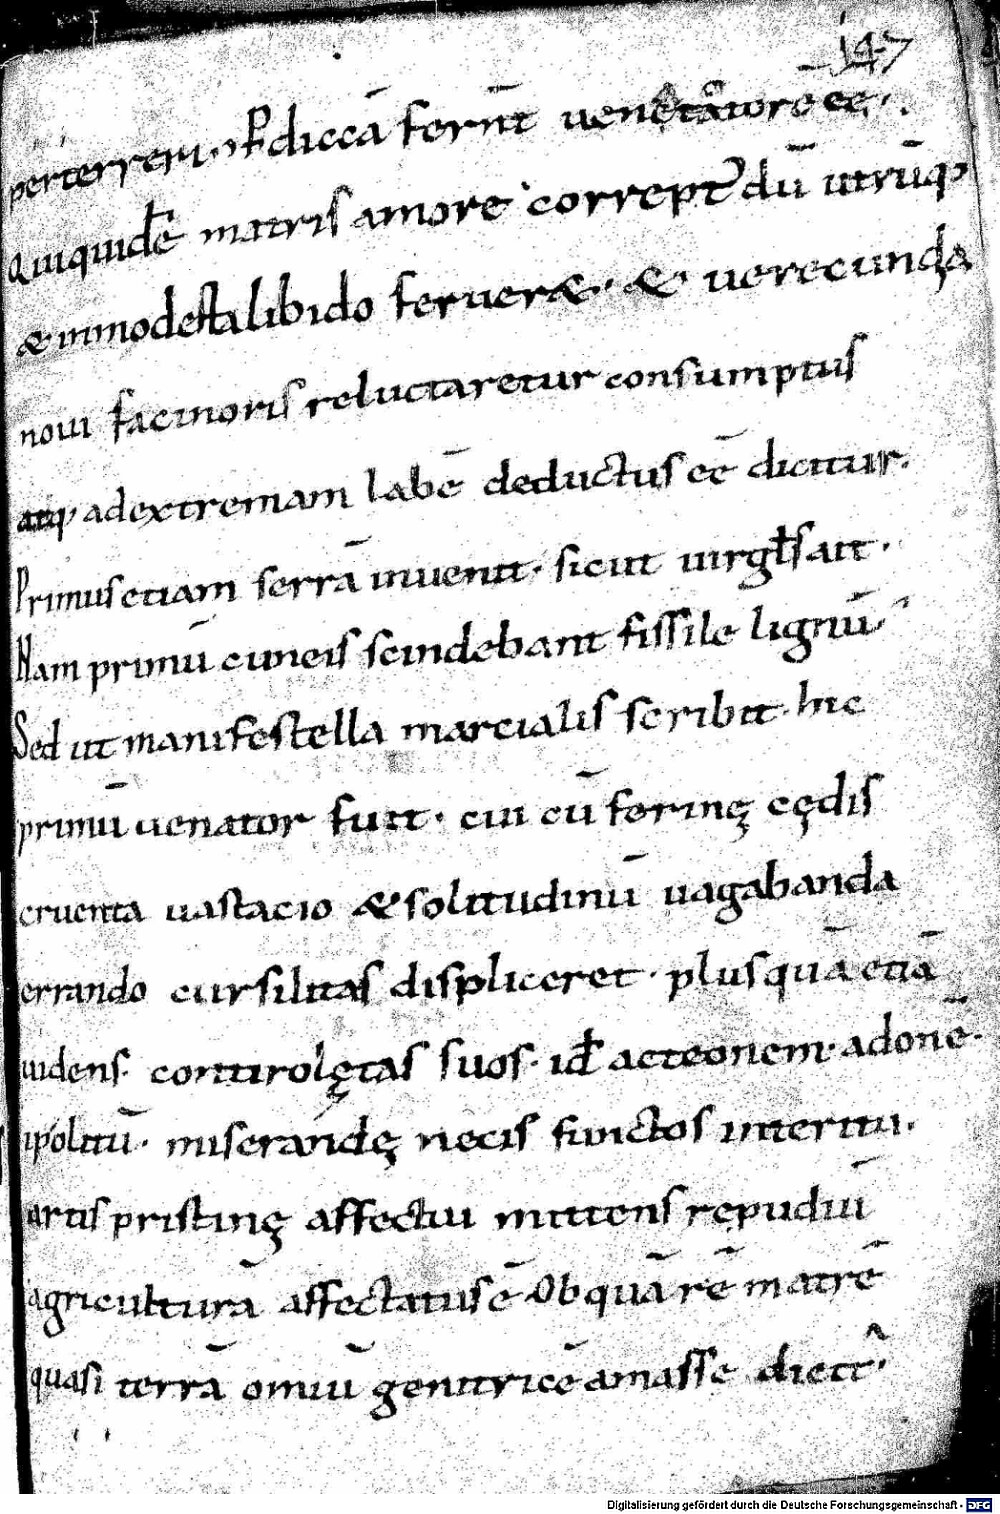 147
perterreri · Pdiccā ferunt̄ uenetâtorē ēē ·
Quiquidē matris amore corrept᾽ dū utrūq᾽
& inmodesta libido feruer& · & uerecundia
noui facinoris reluctaretur consumptus
atq᾽ adextremam labē deductus ēē dicitur.
Primus etiam serrā inuenit · sicut uirgłs ait ·
Nam primū cuneis scindebant fissile lignū ·
Sed ut manifestella marcialis scribit · hic
primū uenator fuit · cui cū ferinę cędis
cruenta uastacio & solitudinū uagabanda
errando cursilitas displiceret · plusquā etiā
uidens · contirolętas suos · id̄ acteonem · adonē ·
ipolitū · miserandę necis functos interitu ·
artis pristinę affectui mittens repudiū
agriculturā affectatus ē Ob quā rē matrē
quasi terrā omiū genitricē amasse dicit̂ ·
Digitalisierung gefördert durch die Deutsche Forschungsgemeinschaft - DFG